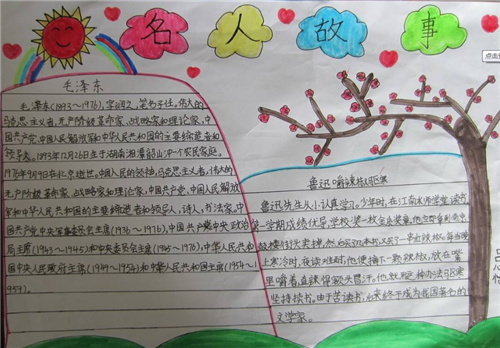 名人故事
毛泽东
毛泽东(1893~1976),字润之,笔名子任。伟大的
马克思主义者,无产阶级革命家、战略家和理论家,中
国共产党、中国人民解放军和中华人民共和国的主要缔造者和
领导者。1893年12月26日生于湖南湘潭韶山冲一个农民家庭。
1976年9月9日在北京逝世。中国人民的领袖,马克思主义者,伟大的
无产阶级革命家、战略家和理论家,中国共产党、中国人民解放
军和中华人民共和国的主要缔造者和领导人,诗人,书法家。中
国共产党中央军事委员会主席(1936~1976),中国共产党中央政治
局主席(1943~1945)和中央委员会主席(1945~1976),中华人民共和
国中央人民政府主席(1949~1954)和中华人民共和国主席(1954~1
959)。
鲁迅嚼辣椒驱寒
鲁迅先生从小认真学习。少年时,在江南水师学堂读书,
第一学期成绩优异,学校奖
上寒冷时,夜读难耐,他便摘下一颗辣椒,放在嘴
里嚼着,直辣得额头冒汗。他就用这种办法驱寒
坚持读书。由于苦读书,后来终于成为我国著名的
文学家。
点击